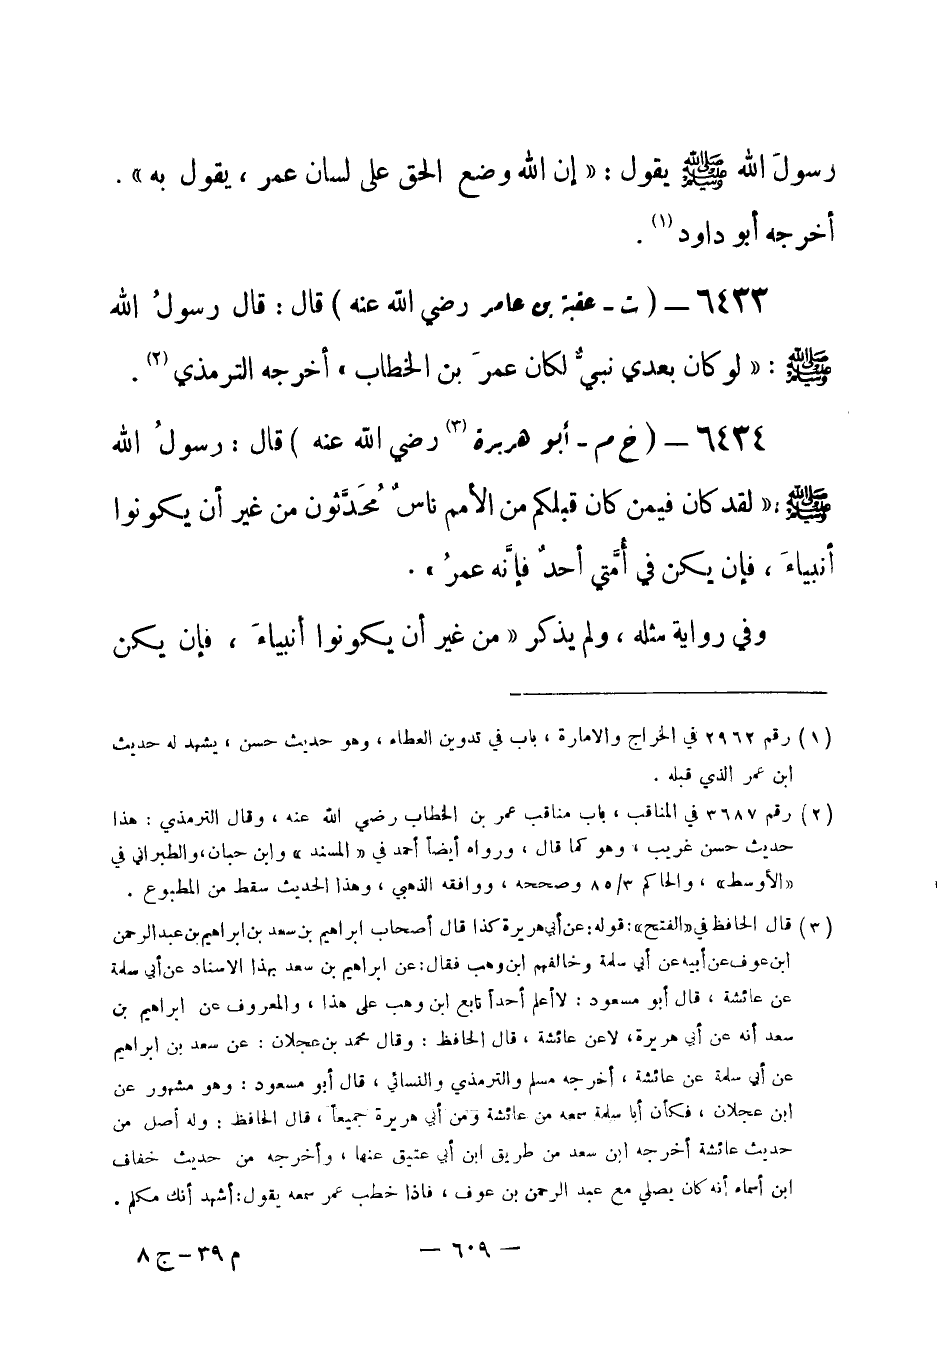 رسولَ الله ﷺ يقول : « إن الله وضع الحق على لسان عمر ، يقول به » .
أخرجه أبو داود (١) .
٦٤٣٣ — ( ت - عقبة بن عامر رضي الله عنه ) قال : قال رسولُ الله
ﷺ : « لو كان بعدي نبيٌّ لكان عمرَ بن الخطاب » أخرجه الترمذي (٢) .
٦٤٣٤ — ( خ م - أبو هريرة (٣) رضي الله عنه ) قال : رسولُ الله
ﷺ : « لقد كان فيمن كان قبلكم من الأمم ناسٌ مُحَدَّثون من غير أن يكونوا
أنبياءَ ، فإن يكن في أُمَّتي أحدٌ فإنَّه عمرُ » .
وفي رواية مثله ، ولم يذكر « من غير أن يكونوا أنبياءَ ، فإن يكن
(١) رقم ٢٩٦٢ في الخراج والامارة ، باب في تدوين العطاء ، وهو حديث حسن ، يشهد له حديث
ابن عمر الذي قبله .
(٢) رقم ٣٦٨٧ في المناقب ، باب مناقب عمر بن الخطاب رضي الله عنه ، وقال الترمذي : هذا
حديث حسن غريب ، وهو كما قال ، ورواه أيضاً أحمد في « المسند » وابن حبان ، والطبراني في
«الأوسط» ، والحاكم ٨٥/٣ وصححه ، ووافقه الذهبي ، وهذا الحديث سقط من المطبوع .
(٣) قال الحافظ في «الفتح»: قوله: عن أبي هريرة كذا قال أصحاب ابراهيم بن سعد بن ابراهيم بن عبد الرحمن
ابن عوف عن أبيه عن أبي سلمة وخالفهم ابن وهب فقال: عن ابراهيم بن سعد بهذا الاسناد عن أبي سلمة
عن عائشة ، قال أبو مسعود : لا أعلم أحداً تابع ابن وهب على هذا ، والمعروف عن ابراهيم بن
سعد أنه عن أبي هريرة، لا عن عائشة ، قال الحافظ : وقال محمد بن عجلان : عن سعد بن ابراهيم
عن أبي سلمة عن عائشة ، أخرجه مسلم والترمذي والنسائي ، قال أبو مسعود : وهو مشهور عن
ابن عجلان ، فكأن أبا سلمة سمعه من عائشة ومن أبي هريرة جميعاً ، قال الحافظ : وله أصل من
حديث عائشة أخرجه ابن سعد من طريق ابن أبي عتيق عنها ، وأخرجه من حديث خفاف
ابن أسماء أنه كان يصلي مع عبد الرحمن بن عوف ، فاذا خطب عمر سمعه يقول: أشهد أنك مكلم .
— ٦٠٩ —
م ٣٩ - ج ٨